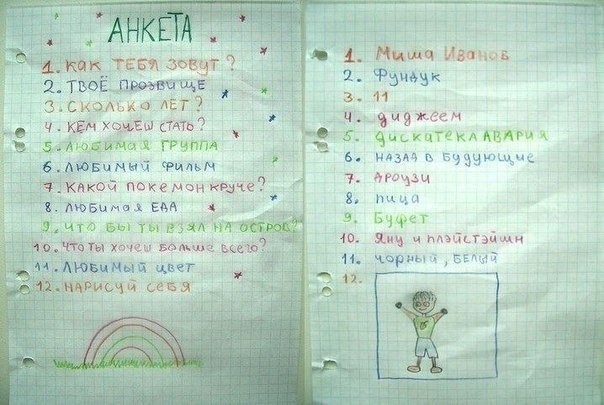 АНКЕТА
1. КАК ТЕБЯ ЗОВУТ?
2. ТВОЁ ПРОЗВИЩЕ
3. СКОЛЬКО ЛЕТ?
4. КЕМ ХОЧЕШ СТАТЬ?
5. ЛЮБИМАЯ ГРУППА
6. ЛЮБИМЫЙ ФИЛЬМ
7. КАКОЙ ПОКЕМОН КРУЧЕ?
8. ЛЮБИМАЯ ЕДА
9. ЧТО БЫ ТЫ ВЗЯЛ НА ОСТРОВ?
10. ЧТО ТЫ ХОЧЕШ БОЛЬШЕ ВСЕГО?
11. ЛЮБИМЫЙ ЦВЕТ
12. НАРИСУЙ СЕБЯ
1. Миша Иванов
2. Фундук
3. 11
4. диджеем
5. дискатека АВАРИЯ
6. НАЗАД В будующие
7. Ароузи
8. пица
9. Буфет
10. Яну и плэйстэйшн
11. чорный, БЕЛЫЙ
12.